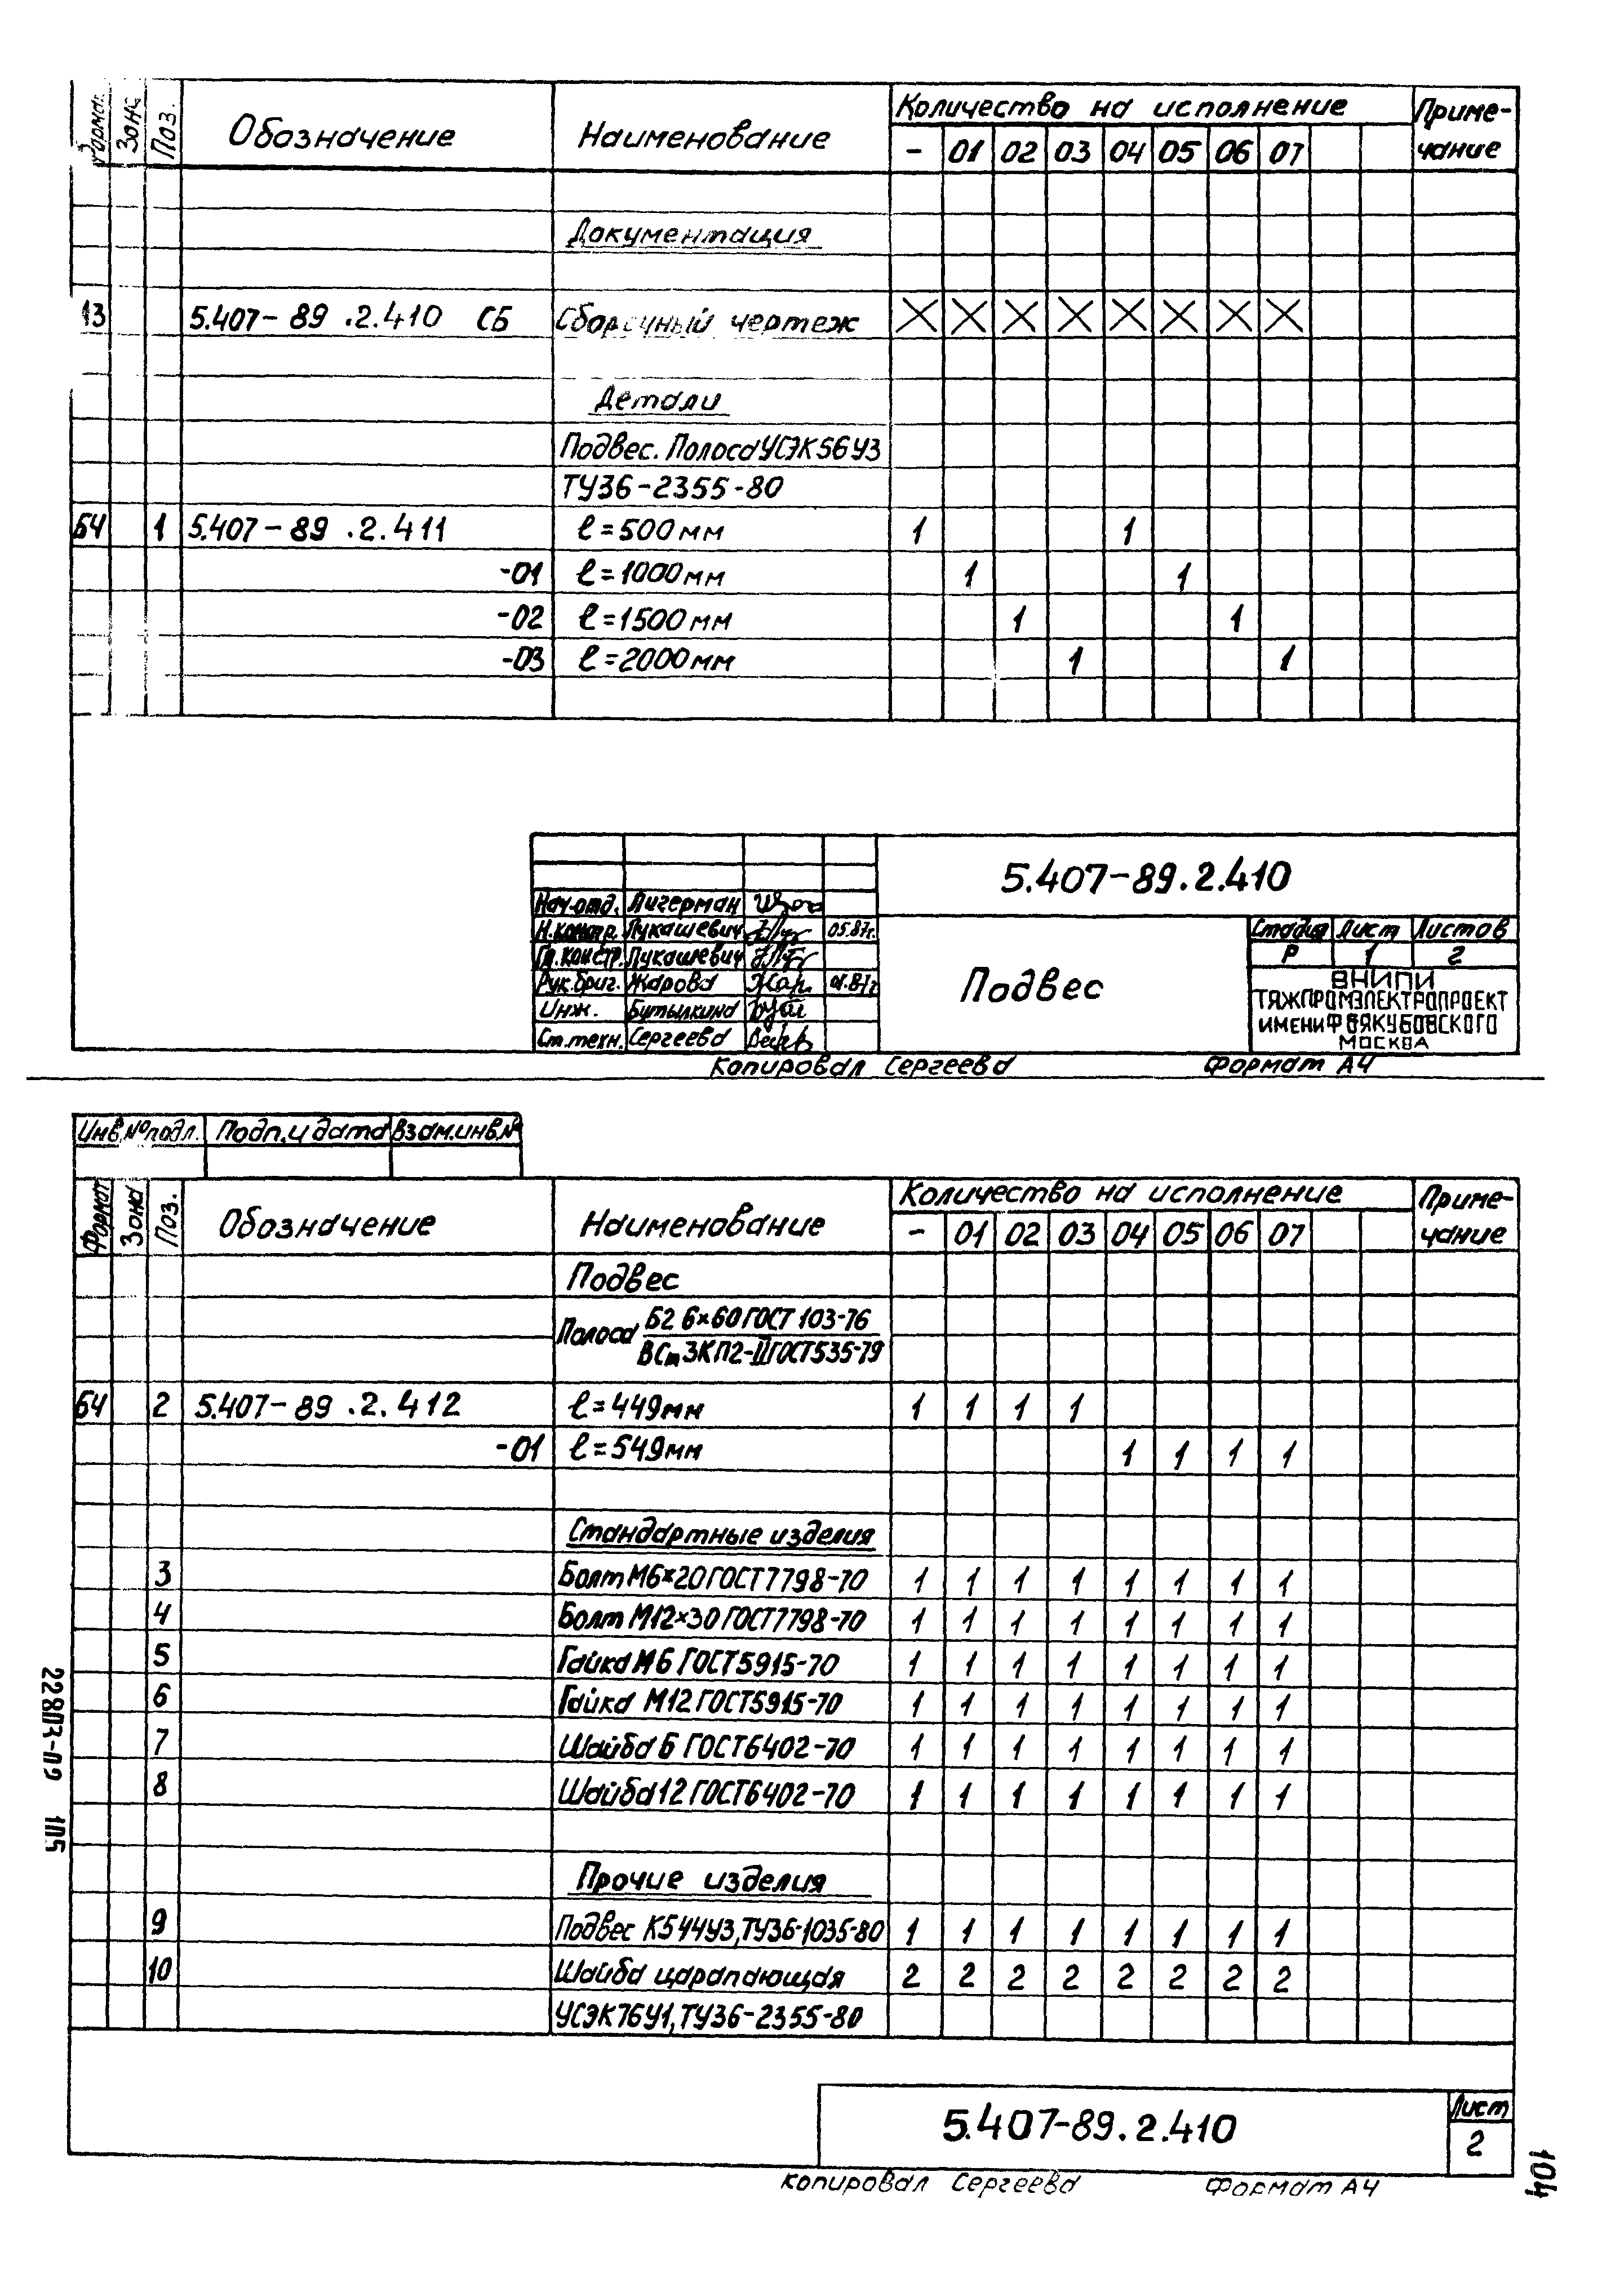 Формат Зона Поз. Обозначение Наименование Количество на исполнение Приме-
чание
- 01 02 03 04 05 06 07
Документация
А3 5.407-89.2.410 СБ Сборочный чертеж X X X X X X X X
Детали
Подвес. Полоса УСЭК56У3
ТУ36-2355-80
БЧ 1 5.407-89.2.411 ℓ=500мм 1 1
-01 ℓ=1000мм 1 1
-02 ℓ=1500мм 1 1
-03 ℓ=2000мм 1 1
5.407-89.2.410
Нач.отд. Лигерман
Н.контр. Лукашевич 05.87г.
Гл.констр. Лукашевич
Рук.бриг. Жарова
Инж. Бутылкина
Ст.техн. Сергеева
Подвес
Стадия Лист Листов
Р 1 2
ВНИПИ
ТЯЖПРОМЭЛЕКТРОПРОЕКТ
ИМЕНИ Ф.Б.ЯКУБОВСКОГО
МОСКВА
Копировал Сергеева Формат А4
Инв.№подл. Подп.и дата Взам.инв.№
Формат Зона Поз. Обозначение Наименование Количество на исполнение Приме-
чание
- 01 02 03 04 05 06 07
Подвес
Полоса Б2 6×60 ГОСТ 103-76
ВСт3КП2-II ГОСТ535-79
БЧ 2 5.407-89.2.412 ℓ=449мм 1 1 1 1
-01 ℓ=549мм 1 1 1 1
Стандартные изделия
3 Болт М6×20 ГОСТ7798-70 1 1 1 1 1 1 1 1
4 Болт М12×30 ГОСТ7798-70 1 1 1 1 1 1 1 1
5 Гайка М6 ГОСТ5915-70 1 1 1 1 1 1 1 1
6 Гайка М12 ГОСТ5915-70 1 1 1 1 1 1 1 1
7 Шайба 6 ГОСТ6402-70 1 1 1 1 1 1 1 1
8 Шайба 12 ГОСТ6402-70 1 1 1 1 1 1 1 1
Прочие изделия
9 Подвес К544У3, ТУ36-1035-80 1 1 1 1 1 1 1 1
10 Шайба царапающая 2 2 2 2 2 2 2 2
УСЭК76У1, ТУ36-2355-80
5.407-89.2.410
Лист
2
Копировал Сергеева Формат А4
22803-09 105
104